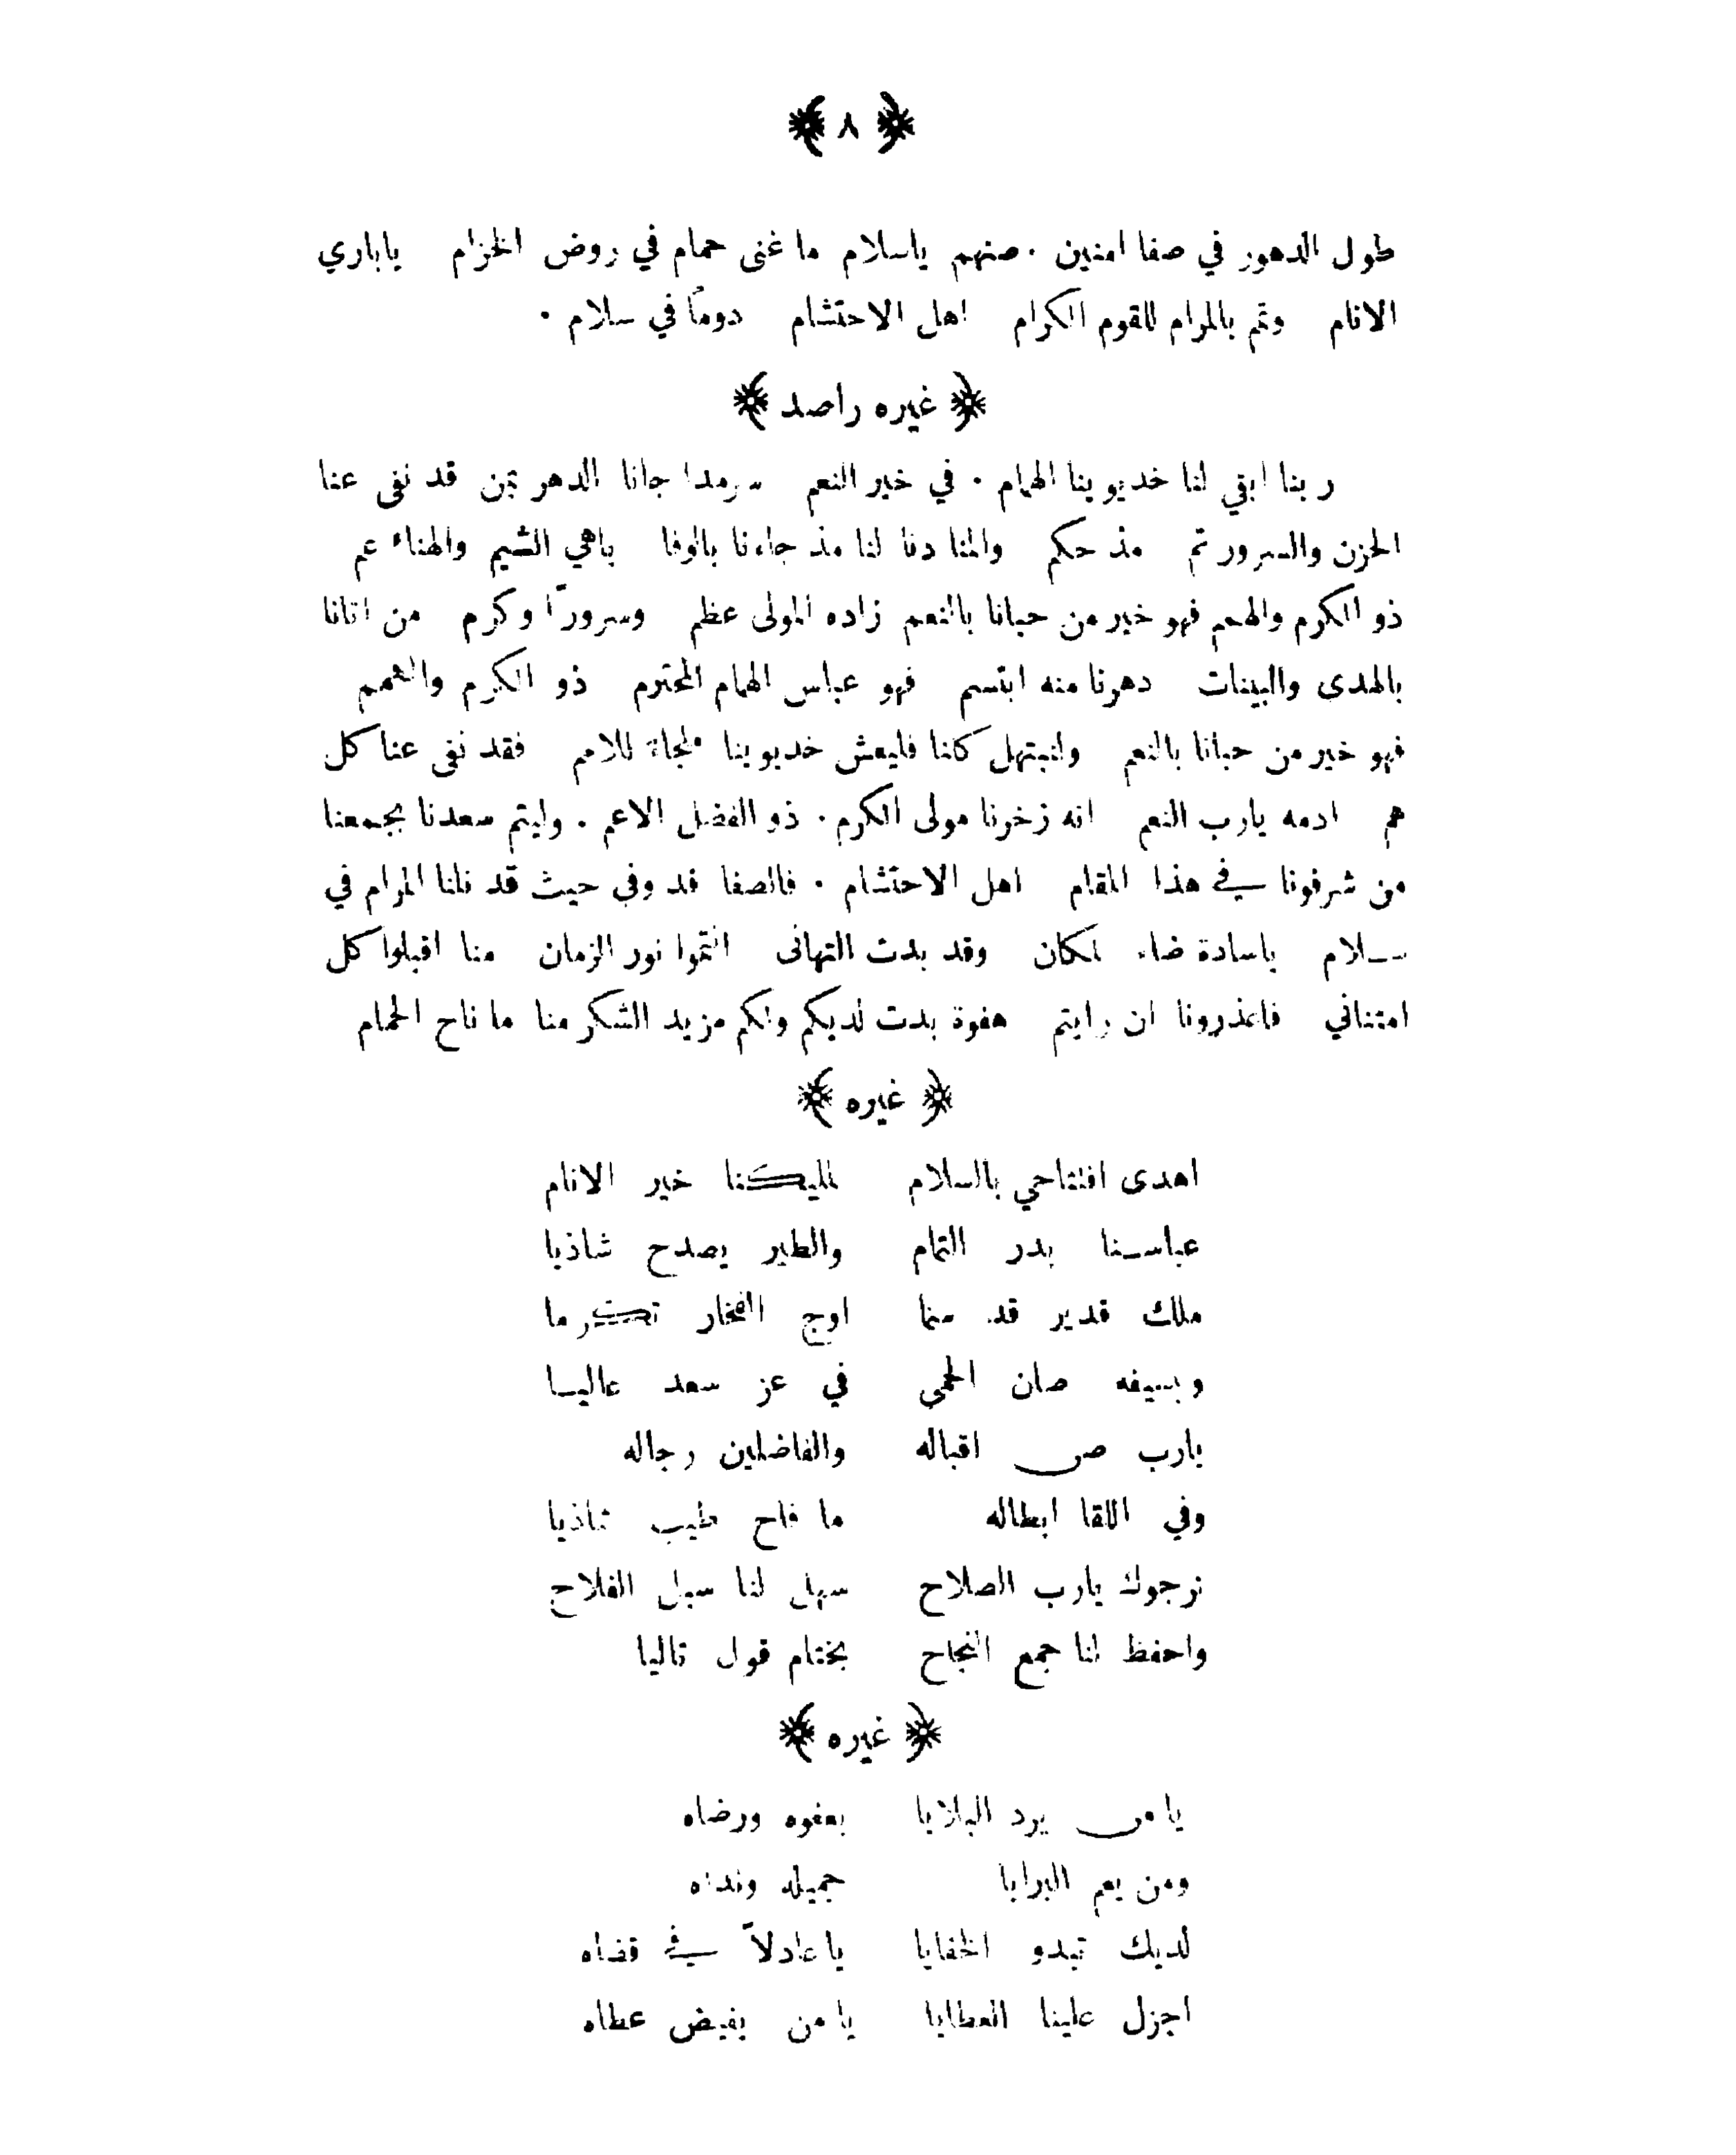 ﴿ ٨ ﴾
طول الدهور في صفا امنين . صنهم ياسلام ما غنى حمام في روض الخزام ياباري
الانام وتم بالمرام للقوم الكرام اهل الاحتشام دوماً في سلام .
﴿ غيره راصد ﴾
ربنا ابقي لنا خديوينا الهمام . في خير النعم سرمدا جانا الدهر قد نفى عنا
الحزن والسرور تم مذ حكم والمنا دنا لنا مذ جاءنا بالوفا ياهي الشيم والهناء عم
ذو الكرم والهمم فهو خير من حبانا بالنعم زاده المولى عظم وسروراً وكرم من اتانا
بالهدى والبينات دهرنا منه ابتسم فهو عباس الهمام المحترم ذو الكرم والهمم
فهو خير من حبانا بالنعم ولنبتهل كلنا فليعش خديوينا ملجاء للامم فقد نفى عنا كل
هم ادمه يارب النعم انه زخرنا مولى الكرم . ذو الفضل الاعم . وليتم سعدنا بجمعنا
من شرفونا في هذا المقام اهل الاحتشام . فالصفا قد وفي حيث قد نلنا المرام في
سلام ياسادة ضاء المكان وقد بدت التهانى انتموا نور الزمان منا اقبلوا كل
امتناني فاعذرونا ان رايتم هفوة بدت لديكم ولكم مزيد الشكر منا ما ناح الحمام
﴿ غيره ﴾
اهدى افتتاحي بالسلام لمليكنا خير الانام
عباسنا بدر التمام والطير يصدح شاذيا
ملك قدير قد سما اوج الفخار تكرما
وبسيفه صان الحمى في عز سعد عاليا
يارب صن اقباله والفاضلين رجاله
وفي اللقا ابطاله ما فاح طيب شاذيا
نرجوك يارب الصلاح سهل لنا سبل الفلاح
واحفظ لنا جمع النجاح بختام قول تاليا
﴿ غيره ﴾
يا من يرد البلايا بعفوه ورضاه
ومن يعم البرايا جميله ونداه
لديك تبدو الخفايا يا عادلاً في قضاه
اجزل علينا العطايا يا من يفيض عطاه